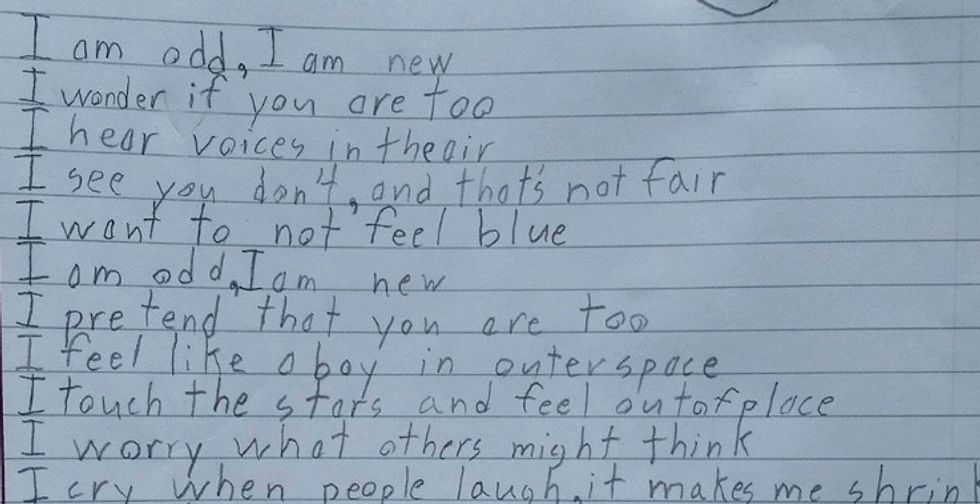 I am odd, I am new
I wonder if you are too
I hear voices in the air
I see you don't, and that's not fair
I want to not feel blue
I am odd, I am new
I pretend that you are too
I feel like a boy in outerspace
I touch the stars and feel out of place
I worry what others might think
I cry when people laugh, it makes me shrin